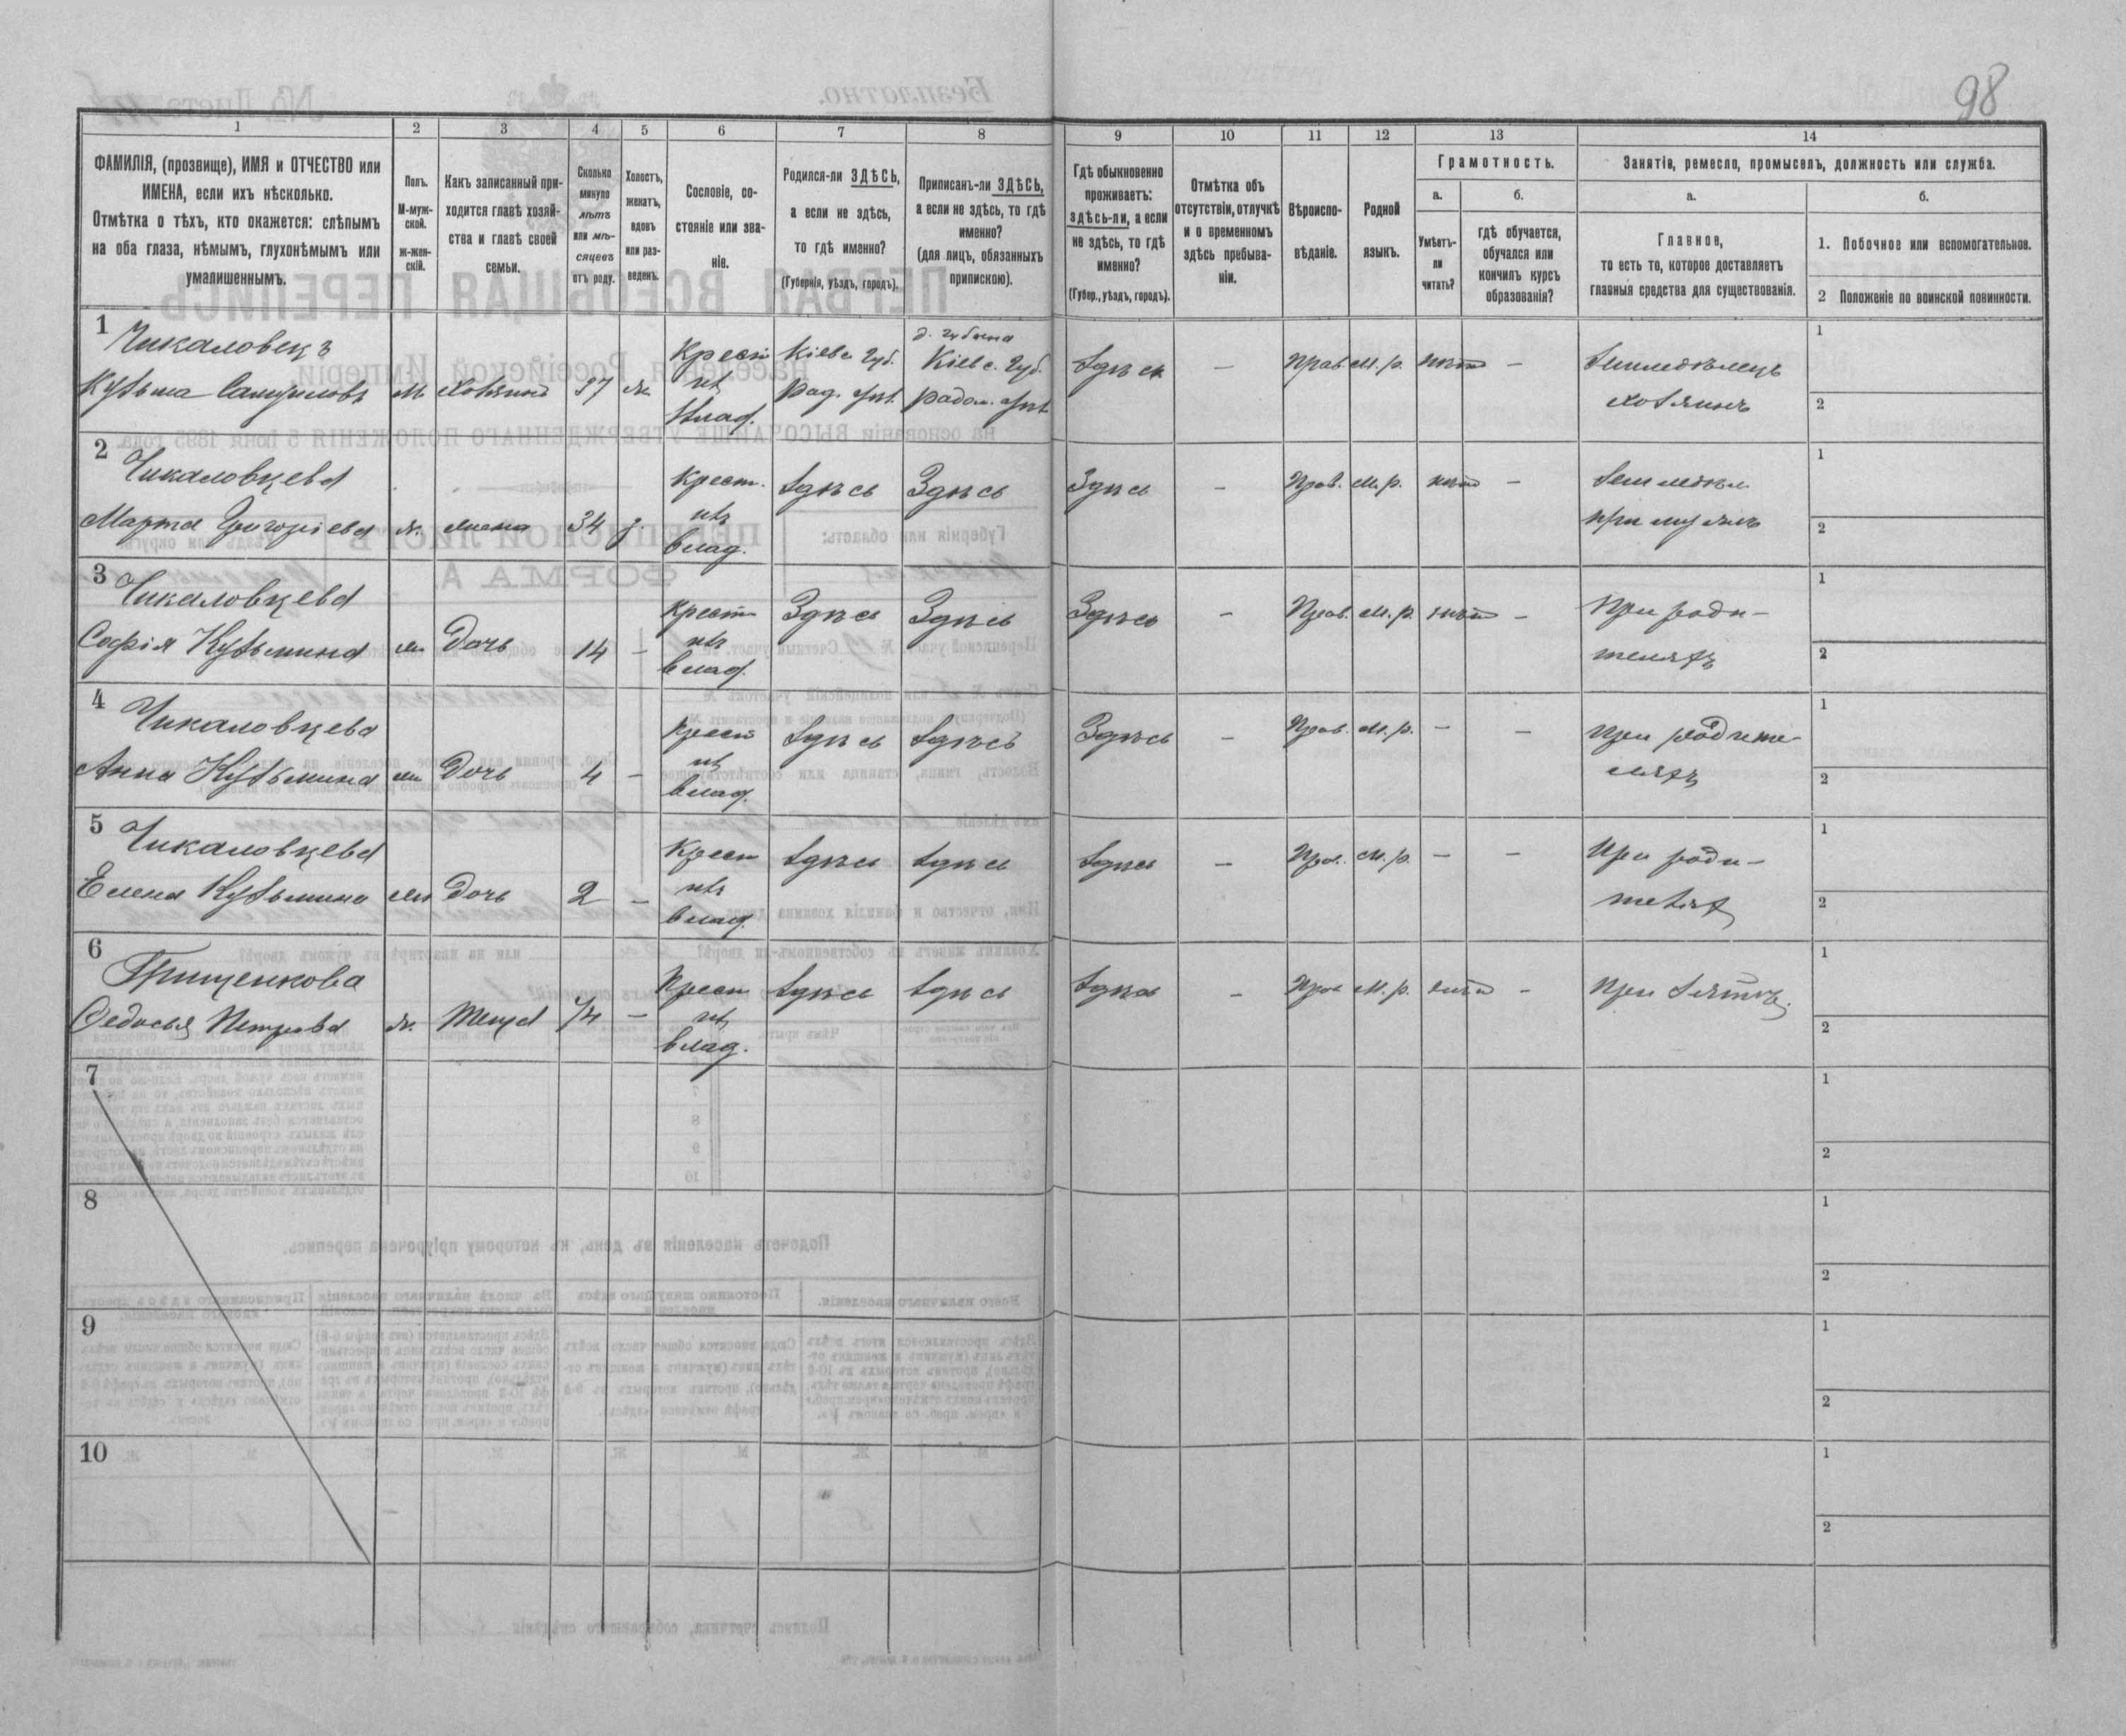 98
1 2 3 4 5 6 7 8 9 10 11 12 13 14
ФАМИЛІЯ, (прозвище), ИМЯ и ОТЧЕСТВО или
ИМЕНА, если ихъ нѣсколько.
Отмѣтка о тѣхъ, кто окажется: слѣпымъ
на оба глаза, нѣмымъ, глухонѣмымъ или
умалишеннымъ.
Полъ.
М-муж-
ской.
ж-жен-
скій.
Какъ записанный при-
ходится главѣ хозяй-
ства и главѣ своей
семьи.
Сколько
минуло
лѣтъ
или мѣ-
сяцевъ
отъ роду.
Холостъ,
женатъ,
вдовъ
или раз-
веденъ.
Сословіе, со-
стояніе или зва-
ніе.
Родился-ли ЗДѢСЬ,
а если не здѣсь,
то гдѣ именно?
(Губернія, уѣздъ, городъ).
Приписанъ-ли ЗДѢСЬ,
а если не здѣсь, то гдѣ
именно?
(для лицъ, обязанныхъ
припискою).
Гдѣ обыкновенно
проживаетъ:
здѣсь-ли, а если
не здѣсь, то гдѣ
именно?
(Губер., уѣздъ, городъ).
Отмѣтка объ
отсутствіи, отлучкѣ
и о временномъ
здѣсь пребыва-
ніи.
Вѣроиспо-
вѣданіе.
Родной
языкъ.
Грамотность.
а.
Умѣетъ-
ли
читать?
б.
гдѣ обучается,
обучался или
кончилъ курсъ
образованія?
Занятіе, ремесло, промыселъ, должность или служба.
а.
Главное,
то есть то, которое доставляетъ
главныя средства для существованія.
б.
1. Побочное или вспомогательное.
2 Положеніе по воинской повинности.
1 Чикаловецъ
Кузьма Самуиловъ м хозяинъ 37 ж.
Крест
влад.
Кіевс. Губ.
Рад. уѣз.
Кіевс. Губ.
Радом. уѣз.
Здѣсь — Прав. М. р. нѣтъ —
Земледѣлецъ
хозяинъ
1
2
2 Чикаловцева
Марта Григоріева ж. жена 34 з.
Крест.
влад.
Здѣсь Здѣсь Здѣсь — Прав. М. р. нѣтъ —
Земледѣл.
при мужѣ
1
2
3 Чикаловцева
Софія Кузьмина ж Дочь 14 —
Крест
влад.
Здѣсь Здѣсь Здѣсь — Прав. М. р. нѣтъ —
При роди-
теляхъ
1
2
4 Чикаловцева
Анна Кузьмина ж Дочь 4 —
Крест
влад.
Здѣсь Здѣсь Здѣсь — Прав. М. р. — —
При родите-
ляхъ
1
2
5 Чикаловцева
Елена Кузьмина ж Дочь 2 —
Крест
влад.
Здѣсь Здѣсь Здѣсь — Прав. М. р. — —
При роди-
теляхъ
1
2
6 Грищенкова
Федосья Петрова ж. Теща —
Крест
влад.
Здѣсь Здѣсь Здѣсь — Прав М. р. нѣтъ —
При зятѣ
1
2
7
1
2
8
1
2
9
1
2
10
1
2